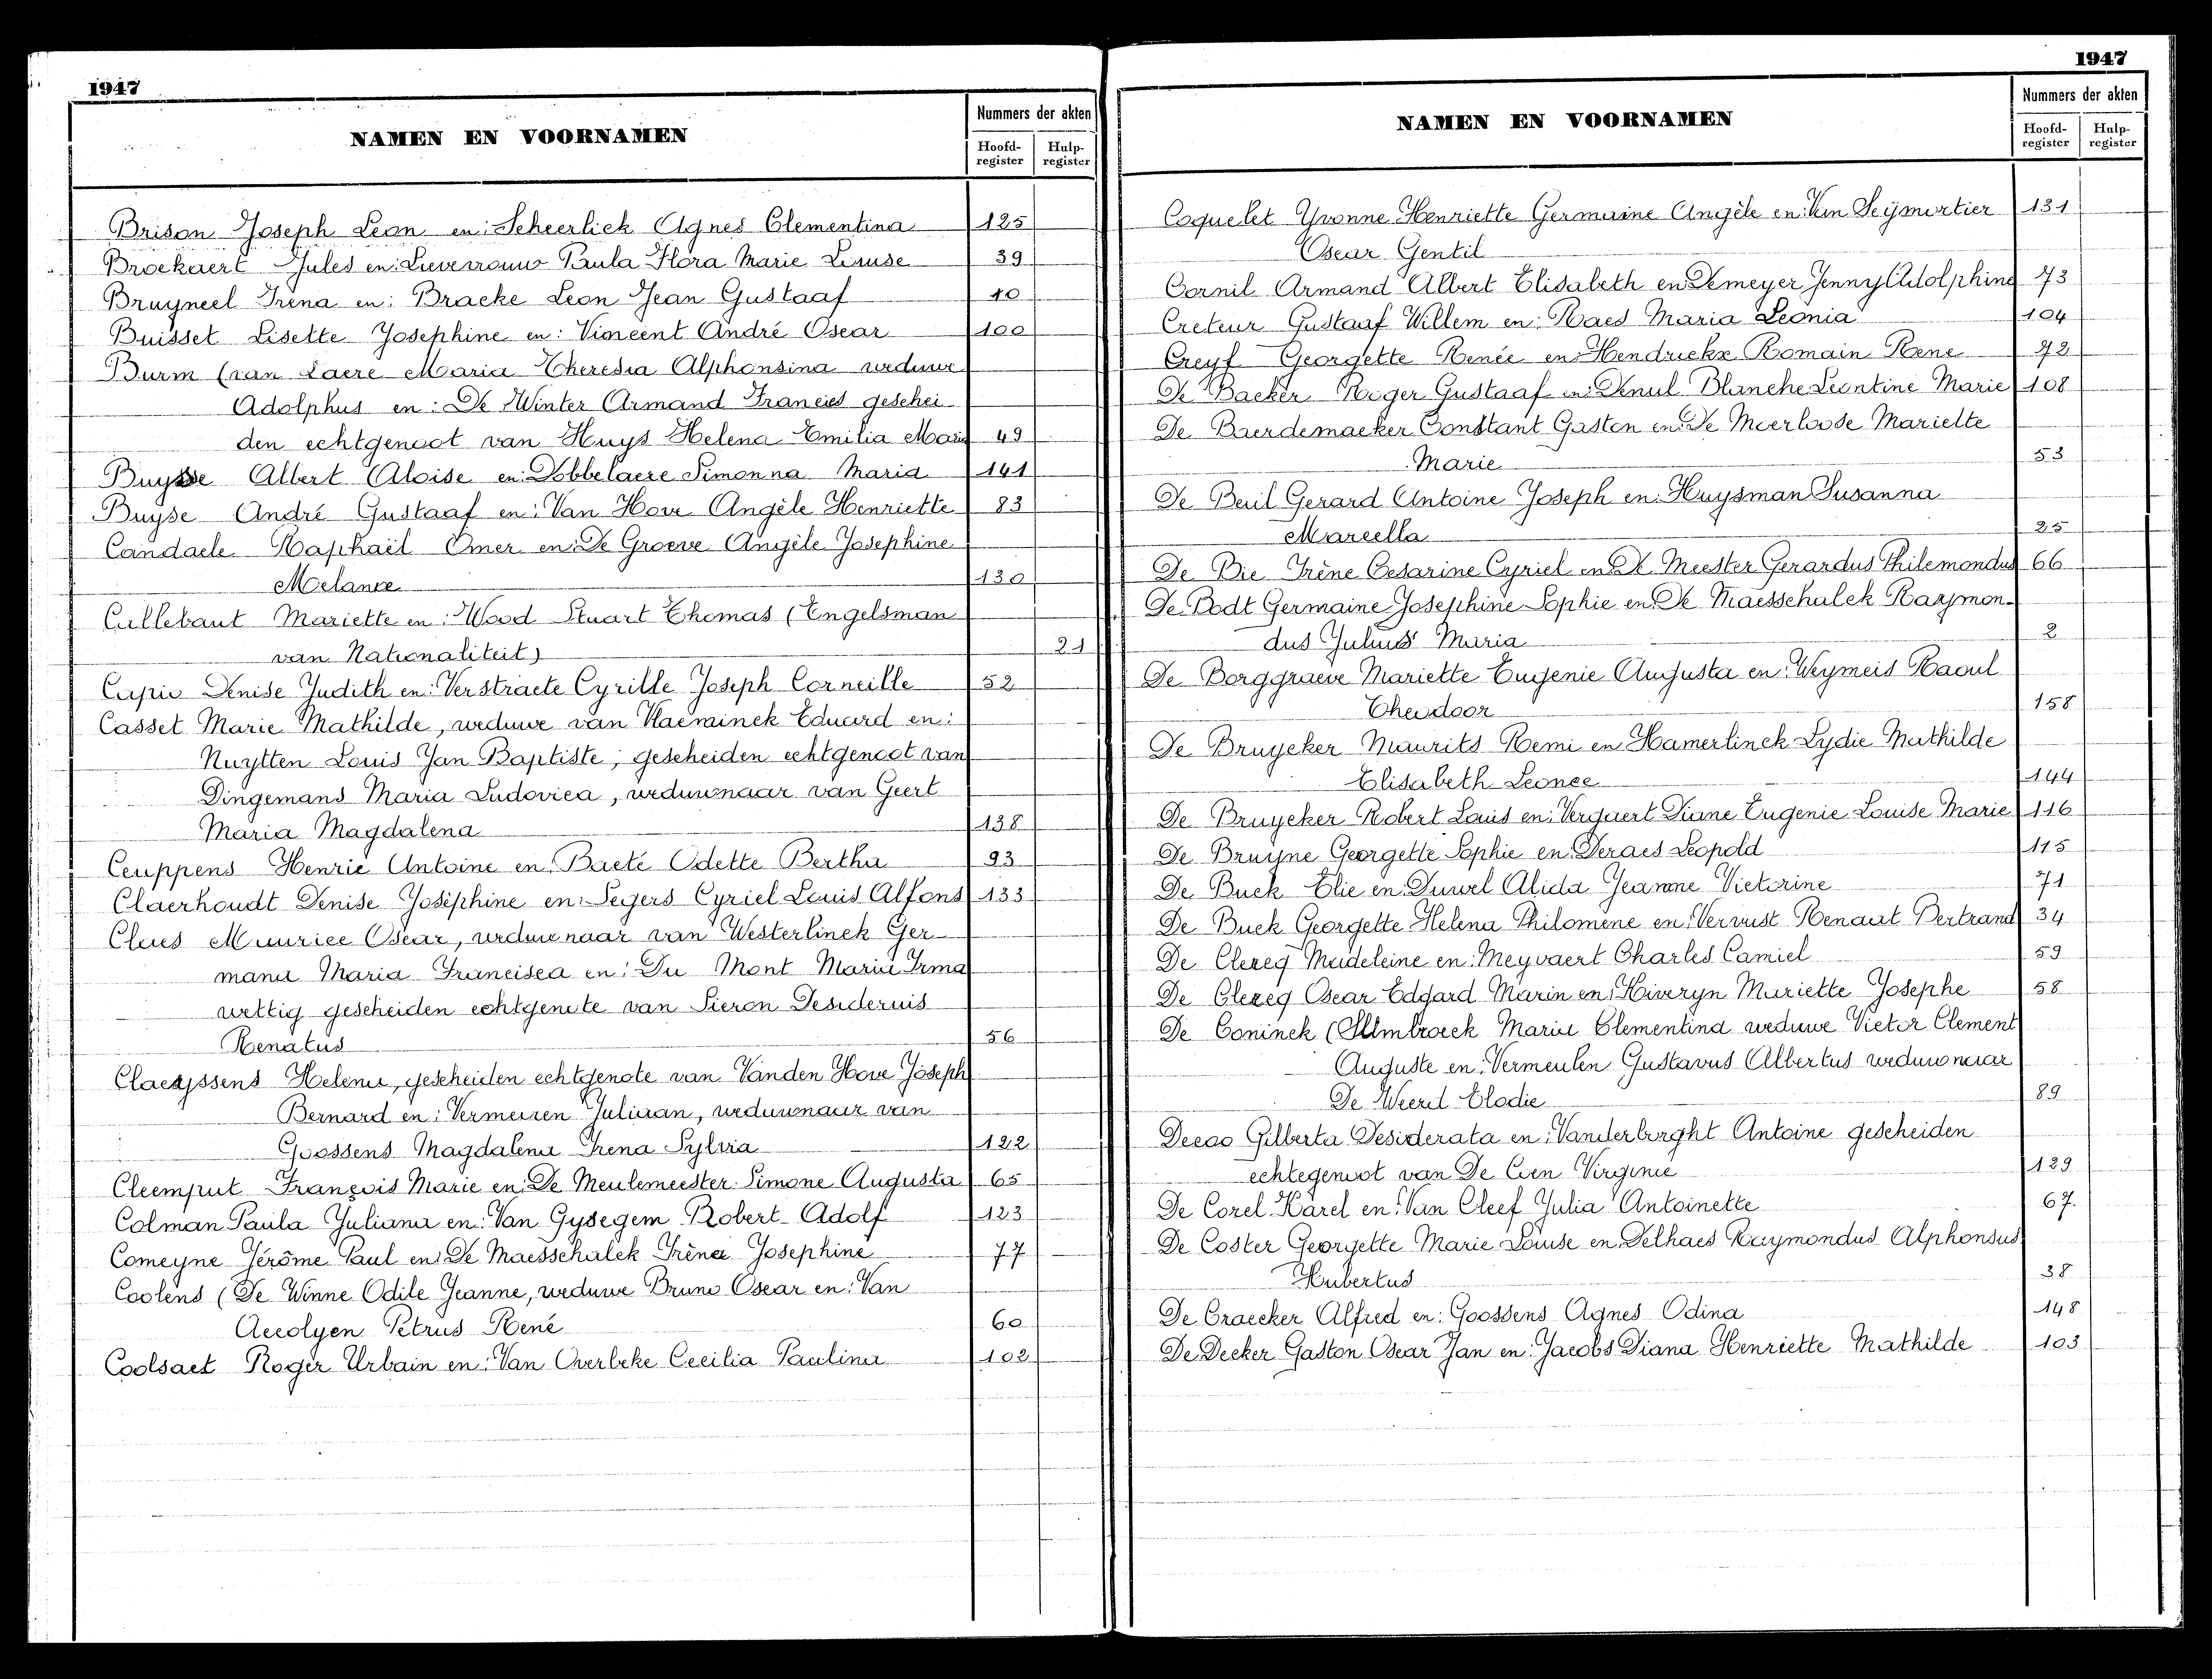 1947
NAMEN EN VOORNAMEN
Nummers der akten
Hoofd-register
Hulp-register
Brison Joseph Leon en: Scheerlick Agnes Clementina 125
Broekaert Jules en: Lievevrouw Paula Flora Marie Louise 39
Bruyneel Iréna en: Bracke Leon Jean Gustaaf 10
Buisset Lisette Josephine en: Vincent André Oscar 100
Burm (van Laere Maria Theresia Alphonsina weduwe
Adolphus en: De Winter Armand Francies geschei-
den echtgenoot van Huys Helena Emilia Maria 49
Buysse Albert Aloise en: Dobbelaere Simonna Maria 141
Buyse André Gustaaf en: Van Hove Angèle Henriette 83
Candaele Raphaël Omer en: De Groeve Angèle Josephine
Melanie 130
Callebaut Mariette en: Wood Stuart Thomas (Engelsman
van Nationaliteit) 21
Capio Denise Judith en: Verstraete Cyrille Joseph Corneille 52
Casset Marie Mathilde, weduwe van Vlaeminck Eduard en:
Nuytten Louis Jan Baptiste, gescheiden echtgenoot van
Dingemans Maria Ludovica, weduwnaar van Geert
Maria Magdalena 138
Ceuppens Henrie Antoine en: Baeté Odette Bertha 93
Claerhoudt Denise Joséphine en: Segers Cyriel Louis Alfons 133
Claes Maurice Oscar, weduwnaar van Westerlinck Ger-
mana Maria Francisca en: Du Mont Maria Irma
wettig gescheiden echtgenote van Sieron Desiderius
Renatus 56
Claeyssens Helena, gescheiden echtgenote van Vanden Hove Joseph
Bernard en: Vermeiren Juliaan, weduwnaar van
Goossens Magdalena Irena Sylvia 122
Cleemput François Marie en: De Meulemeester Simone Augusta 65
Colman Paula Juliana en: Van Gysegem Robert Adolf 123
Comeyne Jérôme Paul en: De Maesschalck Irène Josephine 77
Coolens (De Winne Odile Jeanne, weduwe Bruno Oscar en: Van
Accolyen Petrus René 60
Coolsaet Roger Urbain en: Van Overbeke Cecilia Paulina 102
1947
NAMEN EN VOORNAMEN
Nummers der akten
Hoofd-register
Hulp-register
Coquelet Yvonne Henriette Germaine Angèle en: Van Seijmortier 131
Oscar Gentil
Cornil Armand Albert Elisabeth en: Demeyer Jenny Adolphine 73
Creteur Gustaaf Willem en: Raes Maria Leonia 104
Creyf Georgette Renée en: Hendrickx Romain Rene 92
De Backer Roger Gustaaf en: Denul Blanche Leontine Marie 108
De Baerdemaeker Constant Gaston en: De Moerloose Mariette
Marie 53
De Beul Gerard Antoine Joseph en: Huysman Susanna
Marcella 25
De Bie Irène Cesarine Cyriel en: De Meester Gerardus Philemondus 66
De Bodt Germaine Josephine Sophie en: De Maesschalck Raymon-
dus Julius Maria 2
De Borggraeve Mariette Eugenie Augusta en: Weymeis Raoul
Theodoor 158
De Bruycker Maurits Remi en: Hamerlinck Lydie Mathilde
Elisabeth Leonce 144
De Bruycker Robert Louis en: Vergaert Diane Eugenie Louise Marie 116
De Bruyne Georgette Sophie en: Deraes Leopold 115
De Buck Elie en: Duwel Alida Jeanne Victorine 71
De Buck Georgette Helena Philomène en: Vervust Renaat Bertrand 34
De Clercq Madeleine en: Meyvaert Charles Camiel 59
De Clercq Oscar Edgard Marin en: Hiveryn Mariette Josephe 58
De Coninck (Almbroeck Maria Clementina weduwe Victor Clement
Auguste en: Vermeulen Gustavus Albertus weduwnaar
De Weerd Elodie 89
Decoo Gilberta Desiderata en: Vanderburght Antoine gescheiden
echtegenoot van De Coen Virginie 129
De Corel Karel en: Van Cleef Julia Antoinette 67.
De Coster Georgette Marie Louise en: Delhaes Raymondus Alphonsus
Hubertus 38
De Craecker Alfred en: Goossens Agnes Odina 148
De Decker Gaston Oscar Jan en: Jacobs Diana Henriette Mathilde 103